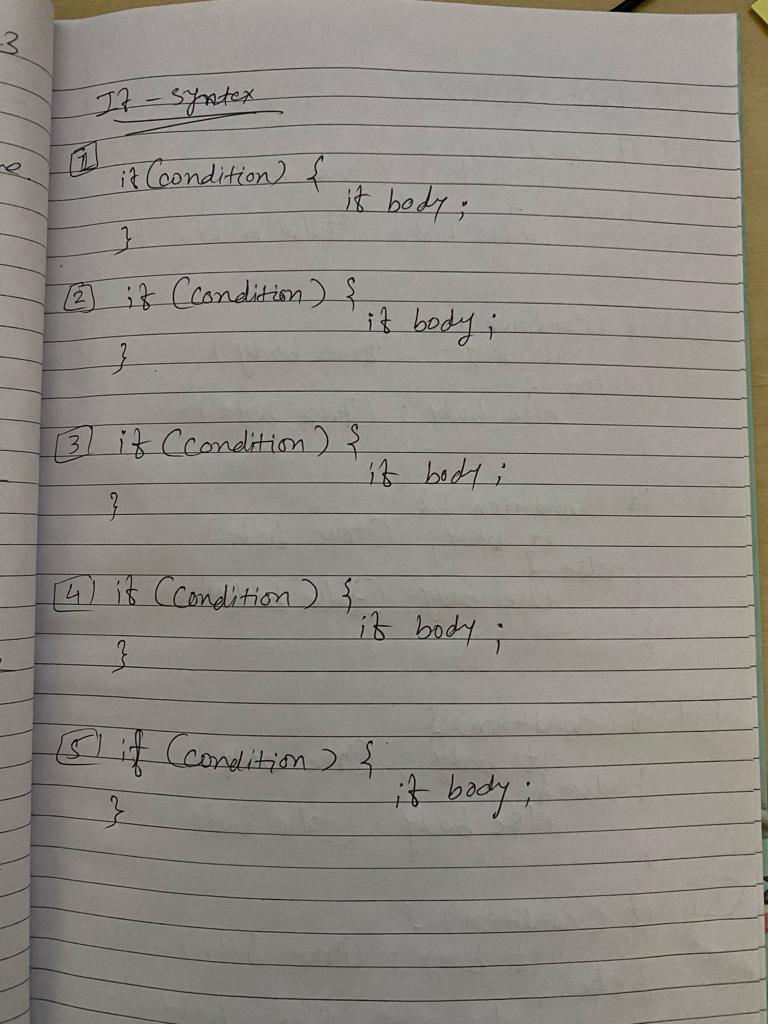 3
If - syntex
1
if (condition) {
if body ;
}
2 if (condition) {
if body ;
}
3 if (condition) {
if body ;
}
4 if (condition) {
if body ;
}
5 if (condition) {
if body ;
}